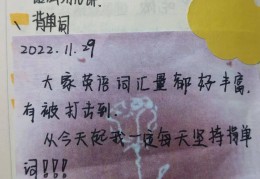 背单词
2022.11.29
大家英语词汇量都好丰富,
有被打击到.
从今天起我一定每天坚持背单
词!!!